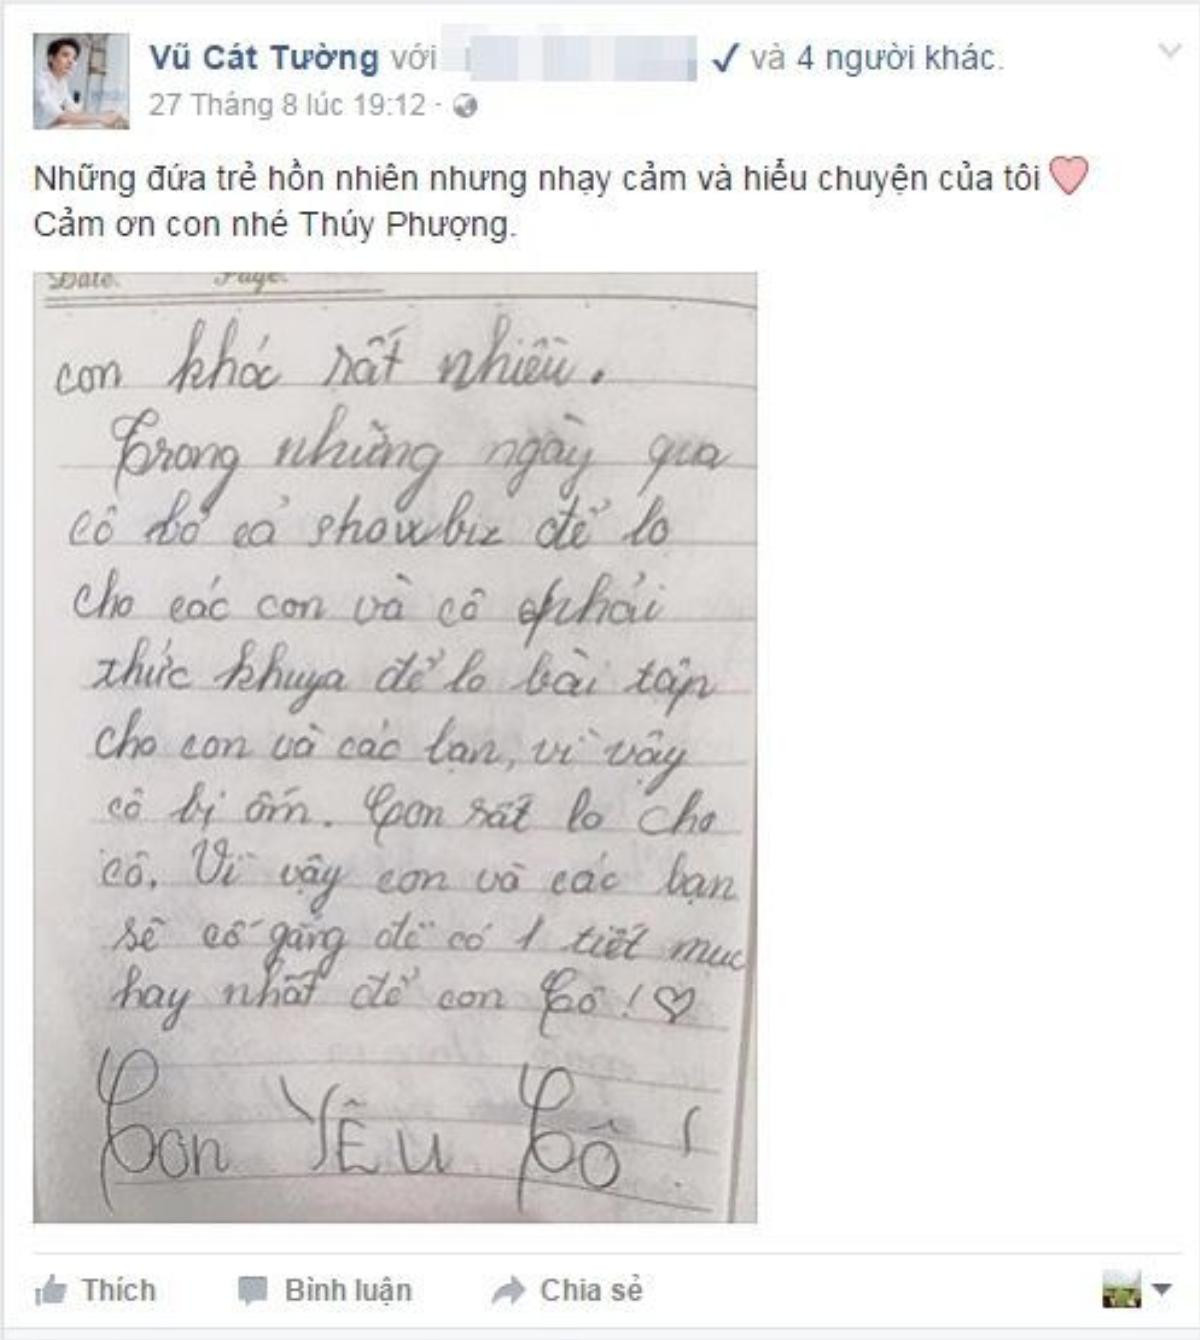 Vũ Cát Tường với ✓ và 4 người khác.
27 Tháng 8 lúc 19:12 ·
Những đứa trẻ hồn nhiên nhưng nhạy cảm và hiểu chuyện của tôi
Cảm ơn con nhé Thúy Phượng.
Date. Page.
con khóc rất nhiều.
Trong những ngày qua
cô bỏ cả showbiz để lo
cho các con và cô phải
thức khuya để lo bài tập
cho con và các bạn, vì vậy
cô bị ốm. Con rất lo cho
cô. Vì vậy con và các bạn
sẽ cố gắng để có 1 tiết mục
hay nhất để con Cô! ♡
Con YÊU Cô!
Thích Bình luận Chia sẻ